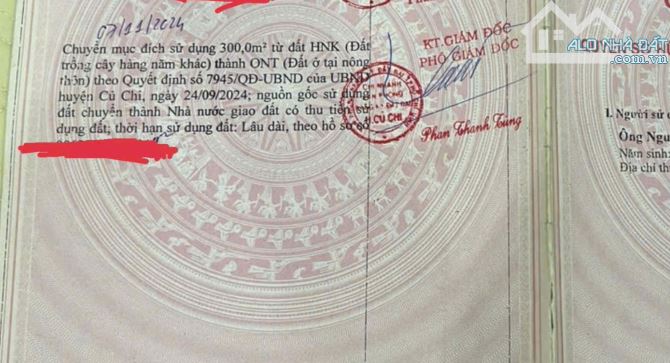 07/11/2024
Chuyển mục đích sử dụng 300,0m² từ đất HNK (Đất
trồng cây hàng năm khác) thành ONT (Đất ở tại nông
thôn) theo Quyết định số 7945/QĐ-UBND của UBND
huyện Củ Chi, ngày 24/09/2024; nguồn gốc sử dụng
đất chuyển thành Nhà nước giao đất có thu tiền sử
dụng đất; thời hạn sử dụng đất: Lâu dài, theo hồ sơ số
KT.GIÁM ĐỐC
PHÓ GIÁM ĐỐC
CHI NHÁNH
H.CỦ CHI
Phan Thanh Tùng
ALO NHÀ ĐẤT
I. Người sử
Ông Ngu
Năm sinh:
Địa chỉ th